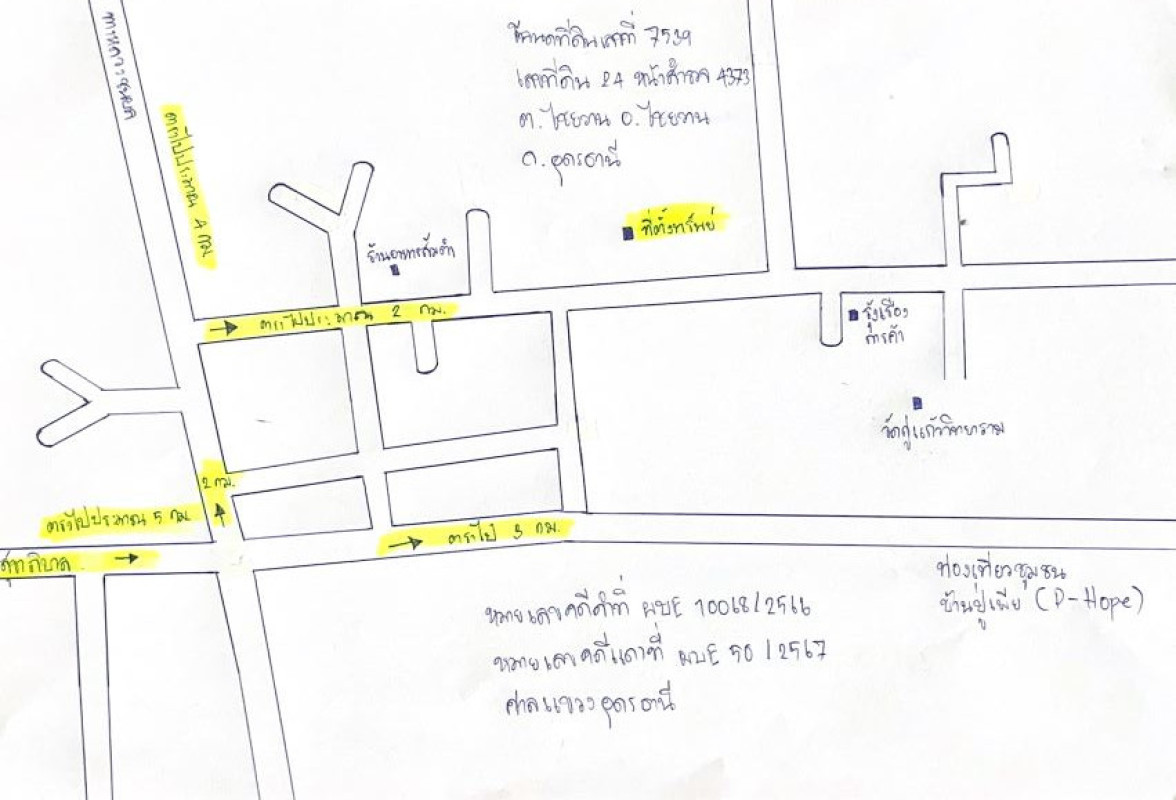 ทางหลวงชนบท
ตรงไปประมาณ 4 กม.
โฉนดที่ดินเลขที่ 7539
เลขที่ดิน 24 หน้าสำรวจ 4373
ต.ไชยวาน อ.ไชยวาน
จ.อุดรธานี
ที่ตั้งทรัพย์
ร้านอาหารส้มตำ
ตรงไปประมาณ 2 กม.
รุ่งเรือง
การค้า
วัดกู่แก้ววิทยาราม
2 กม.
ตรงไปประมาณ 5 กม.
ตรงไป 3 กม.
สุขาภิบาล
ท่องเที่ยวชุมชน
บ้านปู่เพีย (D-Hope)
หมายเลขคดีดำที่ ผบE 10068/2566
หมายเลขคดีแดงที่ ผบE 50/2567
ศาลแขวงอุดรธานี